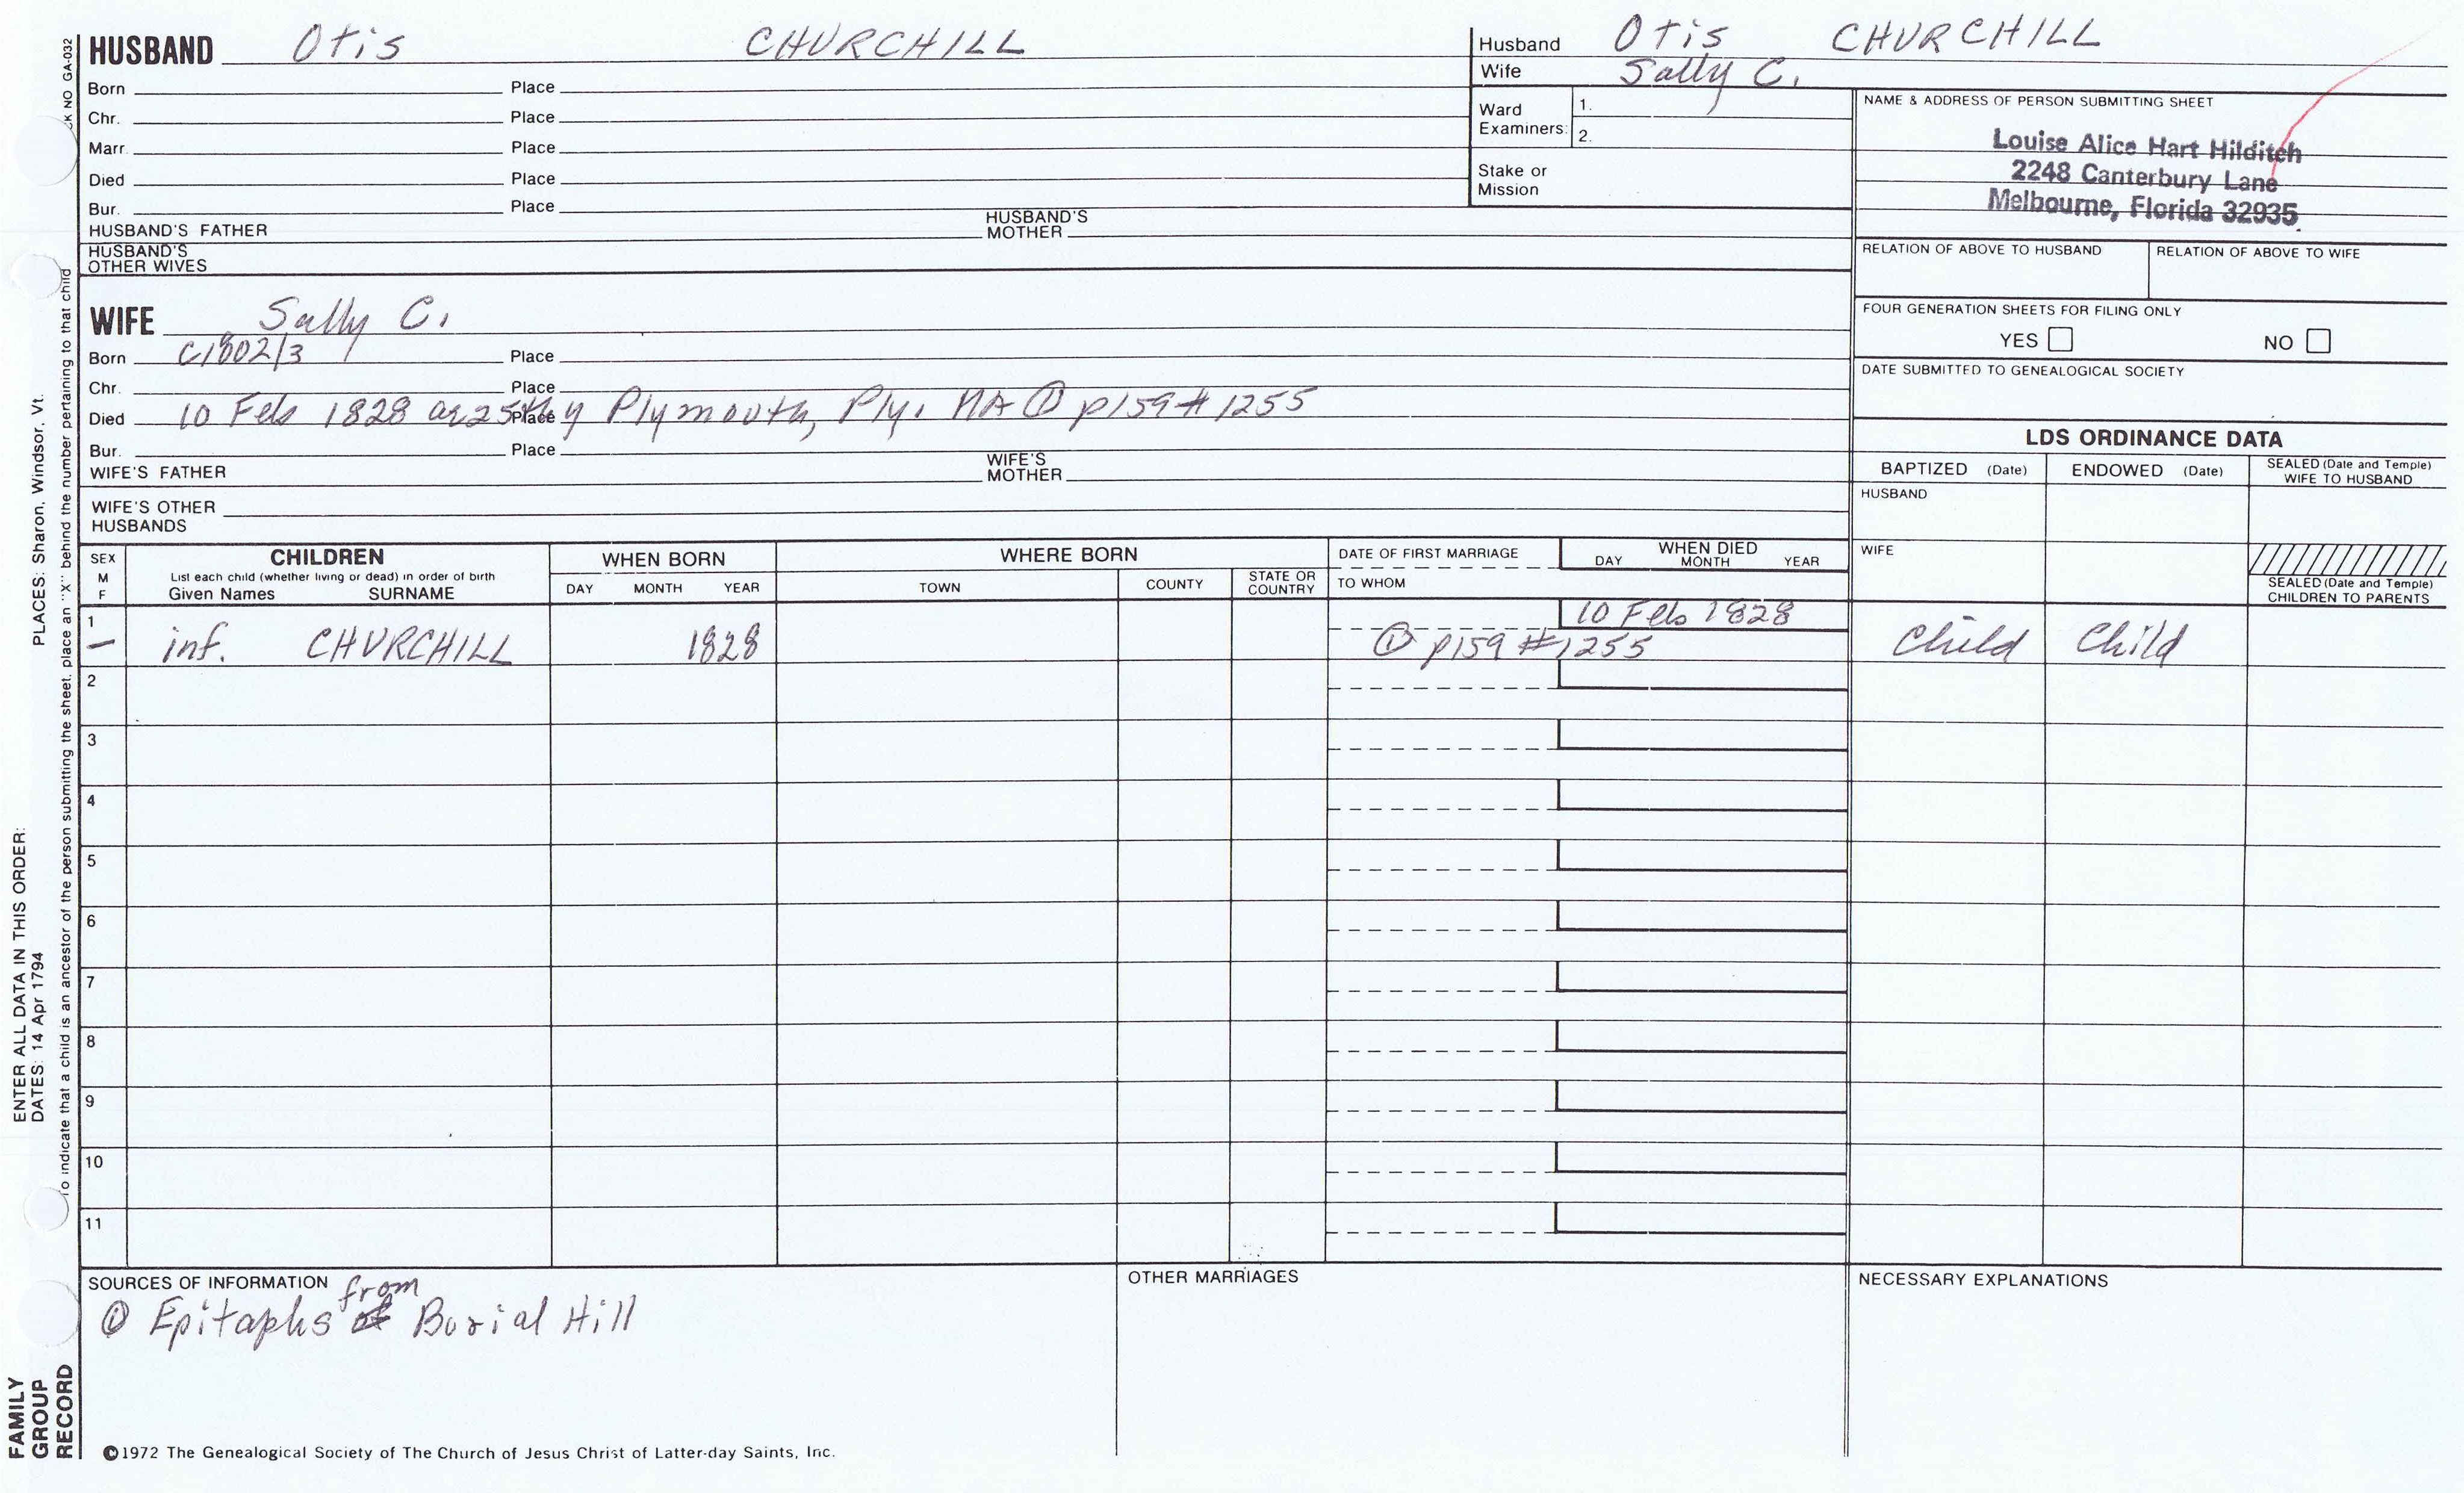 HUSBAND Otis CHURCHILL
Born Place
Chr. Place
Marr. Place
Died Place
Bur. Place
HUSBAND'S FATHER HUSBAND'S MOTHER
HUSBAND'S OTHER WIVES
Husband Otis CHURCHILL
Wife Sally C.
Ward Examiners: 1.
2.
Stake or Mission
NAME & ADDRESS OF PERSON SUBMITTING SHEET
Louise Alice Hart Hilditch
2248 Canterbury Lane
Melbourne, Florida 32935
RELATION OF ABOVE TO HUSBAND RELATION OF ABOVE TO WIFE
FOUR GENERATION SHEETS FOR FILING ONLY
YES NO
DATE SUBMITTED TO GENEALOGICAL SOCIETY
WIFE Sally C.
Born C1802/3 Place
Chr. Place
Died 10 Feb 1828 Place Plymouth, Ply. MA ① p159 #1255
Bur. Place
WIFE'S FATHER WIFE'S MOTHER
WIFE'S OTHER HUSBANDS
LDS ORDINANCE DATA
BAPTIZED (Date) ENDOWED (Date) SEALED (Date and Temple) WIFE TO HUSBAND
HUSBAND
WIFE
SEALED (Date and Temple) CHILDREN TO PARENTS
SEX M F
CHILDREN
List each child (whether living or dead) in order of birth
Given Names SURNAME
WHEN BORN
DAY MONTH YEAR
WHERE BORN
TOWN COUNTY STATE OR COUNTRY
DATE OF FIRST MARRIAGE
TO WHOM
WHEN DIED
DAY MONTH YEAR
1 10 Feb 1828
— inf. CHURCHILL 1828 ① p159 #1255 Child Child
2
3
4
5
6
7
8
9
10
11
SOURCES OF INFORMATION
from
① Epitaphs Burial Hill
OTHER MARRIAGES
NECESSARY EXPLANATIONS
©1972 The Genealogical Society of The Church of Jesus Christ of Latter-day Saints, Inc.
FAMILY
GROUP
RECORD
ENTER ALL DATA IN THIS ORDER:
DATES: 14 Apr 1794 PLACES: Sharon, Windsor, Vt.
To indicate that a child is an ancestor of the person submitting the sheet, place an "X" behind the number pertaining to that child
CK NO GA-032